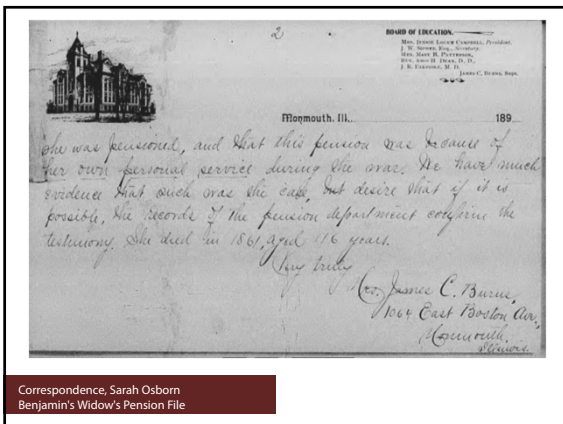 2
BOARD OF EDUCATION.
Mrs. Judge Louie Campbell, President.
J. W. Secretary.
Mrs. Mary B. Patterson,
Rev. H. Dean, D. D.,
J. R. M. D.
James C. Burns, Supt.
Monmouth, Ill., 189
She was pensioned, and that this pension was because of
her own personal service during the war. We have much
evidence that such was the case, but desire that if it is
possible, the records of the pension department confirm the
testimony. She died in 1861, aged 116 years.
Very truly
Mrs. James C. Burns,
1064 East Boston Ave.,
Monmouth,
Illinois.
Correspondence, Sarah Osborn
Benjamin's Widow's Pension File